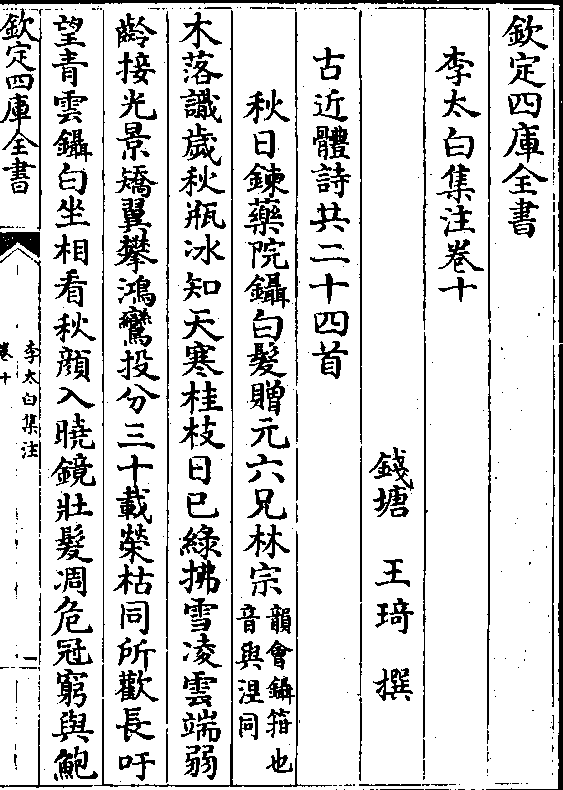 欽定四庫全書
李太白集注卷十
錢塘 王琦 撰
古近體詩共二十四首
秋日鍊藥院鑷白髮贈元六兄林宗韻會鑷箝也
音與涅同
木落識歲秋瓶冰知天寒桂枝日已綠拂雪凌雲端弱
齡接光景矯翼攀鴻鸞投分三十載榮枯同所歡長吁
望青雲鑷白坐相看秋顔入曉鏡壯髮凋危冠窮與鮑
欽定四庫全書
李太白集注
卷十
一